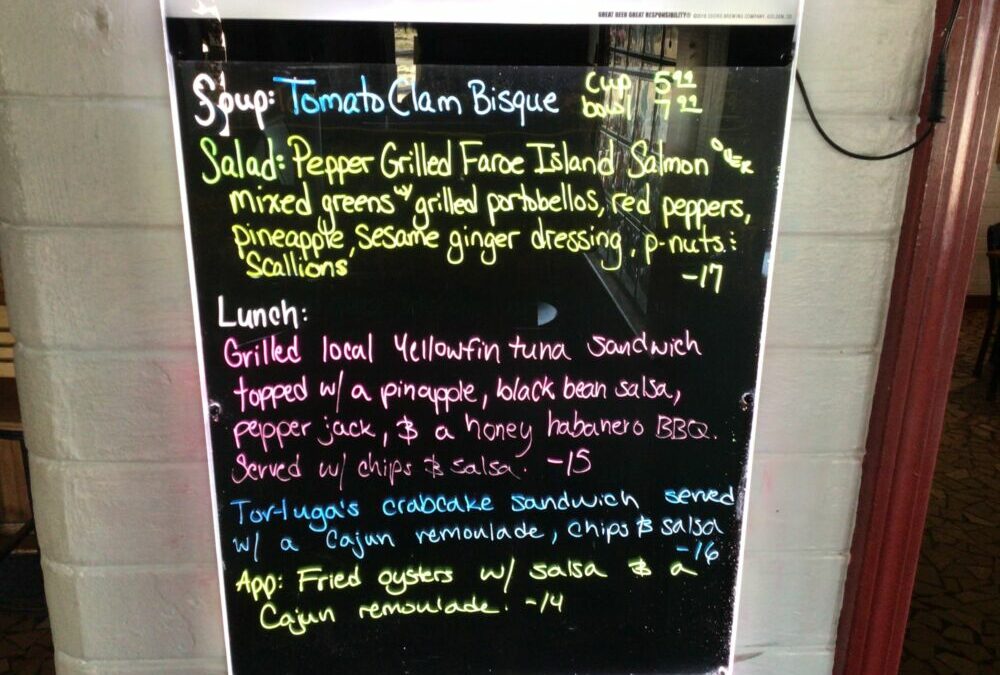 GREAT BEER GREAT RESPONSIBILITY® ©2016 COORS BREWING COMPANY, GOLDEN, CO
Soup: Tomato Clam Bisque cup 5.99
bowl 7.99
Salad: Pepper Grilled Faroe Island Salmon over
mixed greens w/ grilled portobellos, red peppers,
pineapple, sesame ginger dressing, p-nuts :
Scallions -17
Lunch:
Grilled local Yellowfin tuna sandwich
topped w/ a pineapple, black bean salsa,
pepper jack, & a honey habanero BBQ.
Served w/ chips & salsa. -15
Tortuga's crabcake sandwich served
w/ a Cajun remoulade, chips & salsa
-16
App: Fried oysters w/ salsa & a
Cajun remoulade. -14